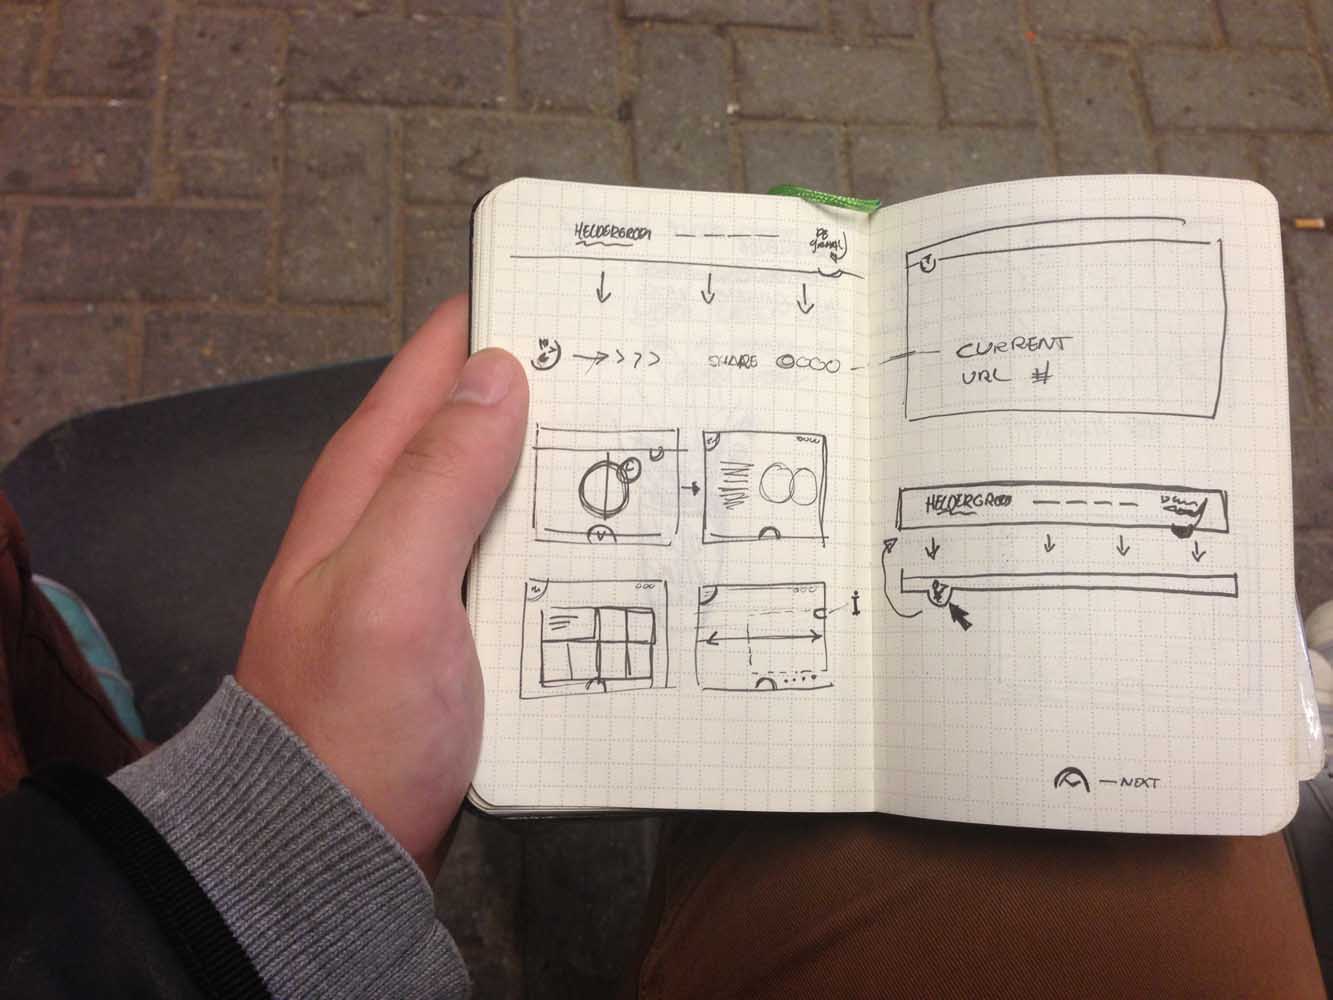 HELDERGROEN
SHARE
CURRENT
URL #
HELDERGROEN
i
NEXT